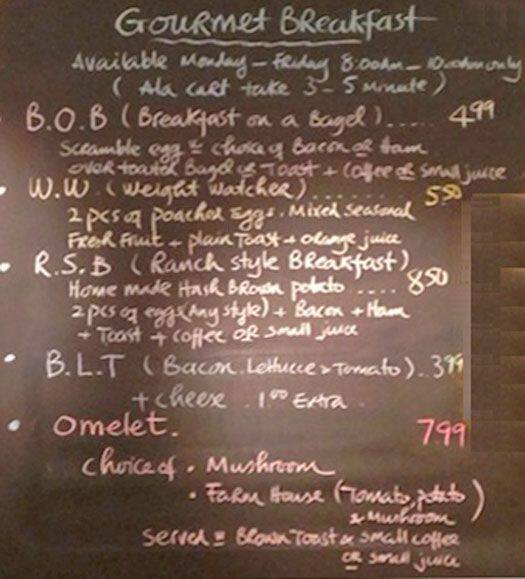 Gourmet Breakfast
Available Monday - Friday 8:00am - 10:00am only
( Ala cart take 3 - 5 Minute )
B.O.B ( Breakfast on a Bagel ) ..... 4.99
Scramble egg + choice of Bacon or Ham
over toasted Bagel or Toast + Coffee or Small juice
W.W. ( Weight Watcher ) ....... 5.50
2 pcs of poached Eggs. Mixed Seasonal
Fresh Fruit + plain Toast + orange juice
R.S.B ( Ranch Style Breakfast )
Home made Hash Brown potato .... 8.50
2 pcs of eggs (Any Style) + Bacon + Ham
+ Toast + coffee OR small juice
B.L.T ( Bacon. Lettuce & Tomato ) . 3.99
+ cheese . 1.00 Extra .
Omelet. 799
choice of . Mushroom
• Farm House ( Tomato, potato
& Mushroom )
served = Brown Toast & small coffee
or small juice